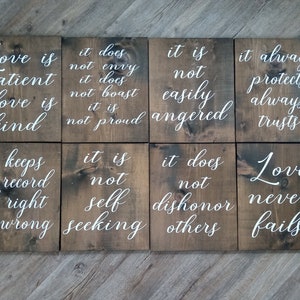 Love is
patient
love is
kind
it does
not envy
it does
not boast
it is
not proud
it is
not
easily
angered
it always
protects
always
trusts
keeps
record
right
wrong
it is
not
self
seeking
it does
not
dishonor
others
Love
never
fails